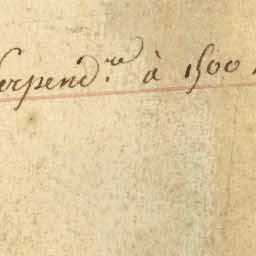 erpend.re à 1500